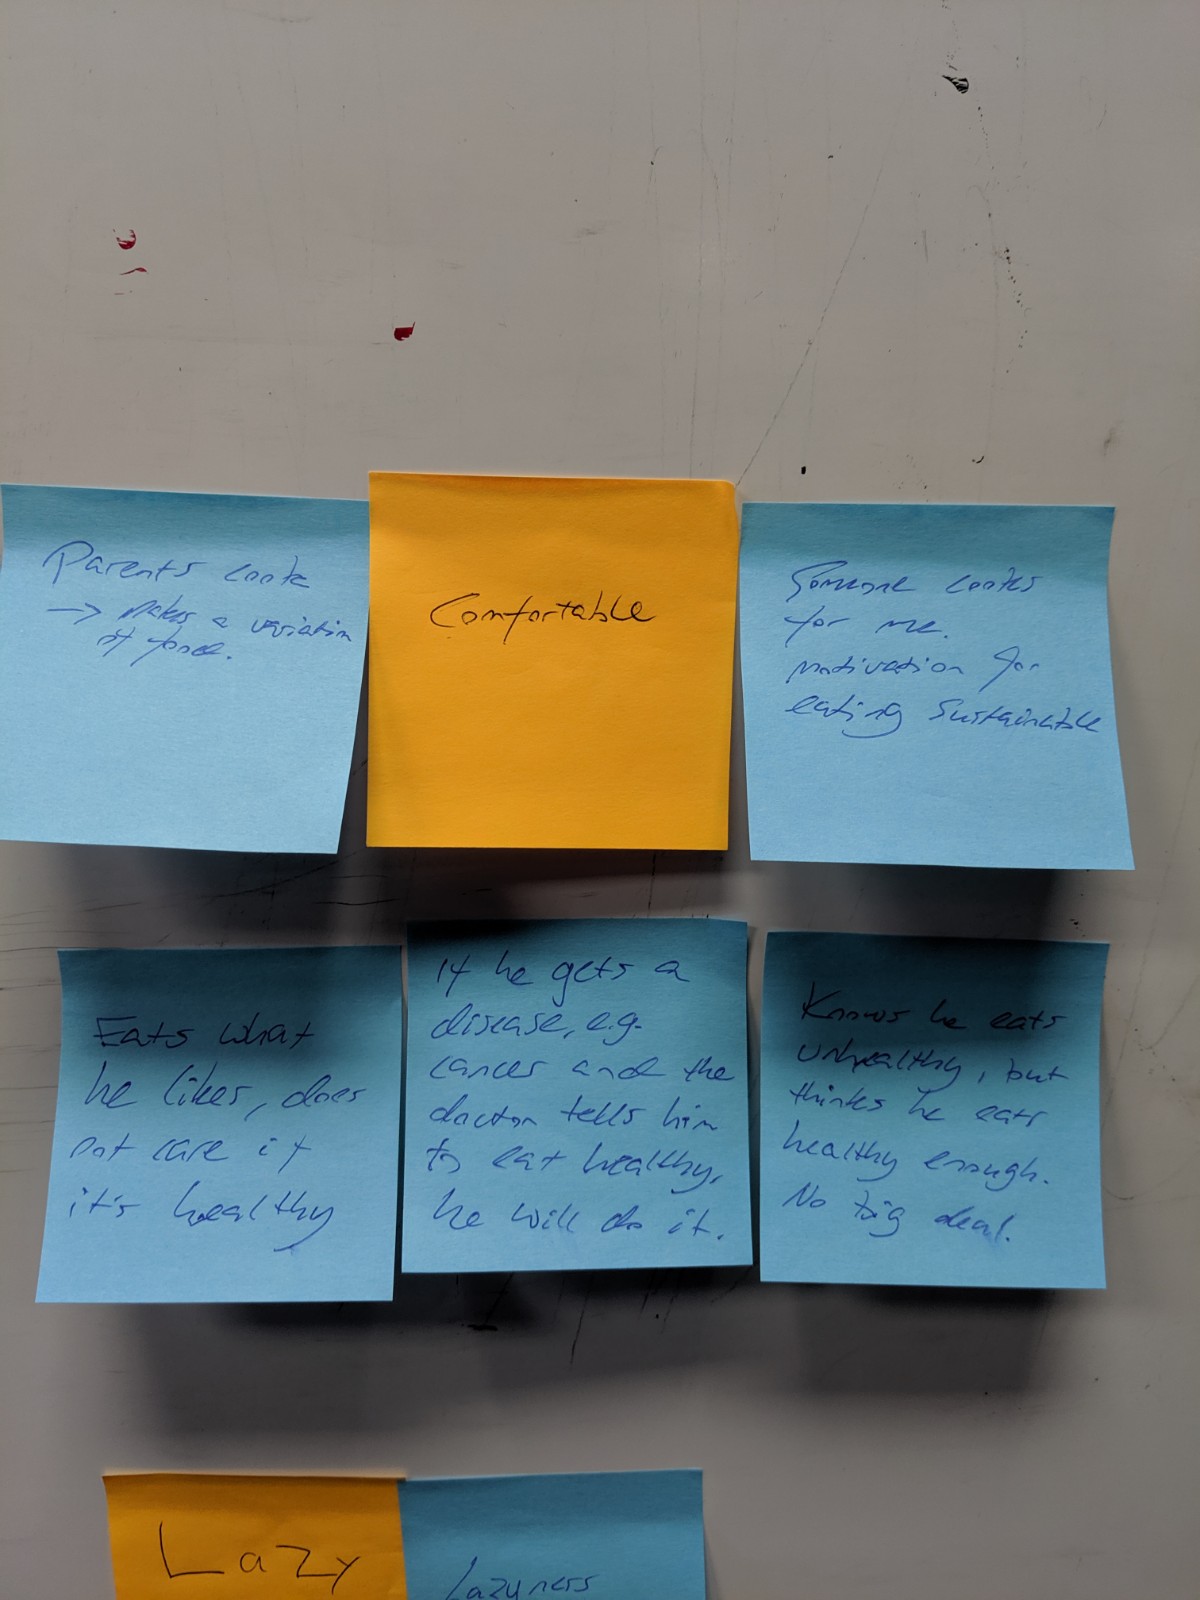 Parents cook
→ makes a variation
of food.
Comfortable
Someone cooks
for me.
motivation for
eating sustainable
Eats what
he likes, does
not care if
it's healthy
If he gets a
disease, e.g.
cancer and the
doctor tells him
to eat healthy,
he will do it.
Knows he eats
unhealthy, but
thinks he eats
healthy enough.
No big deal.
Lazy
Lazyness